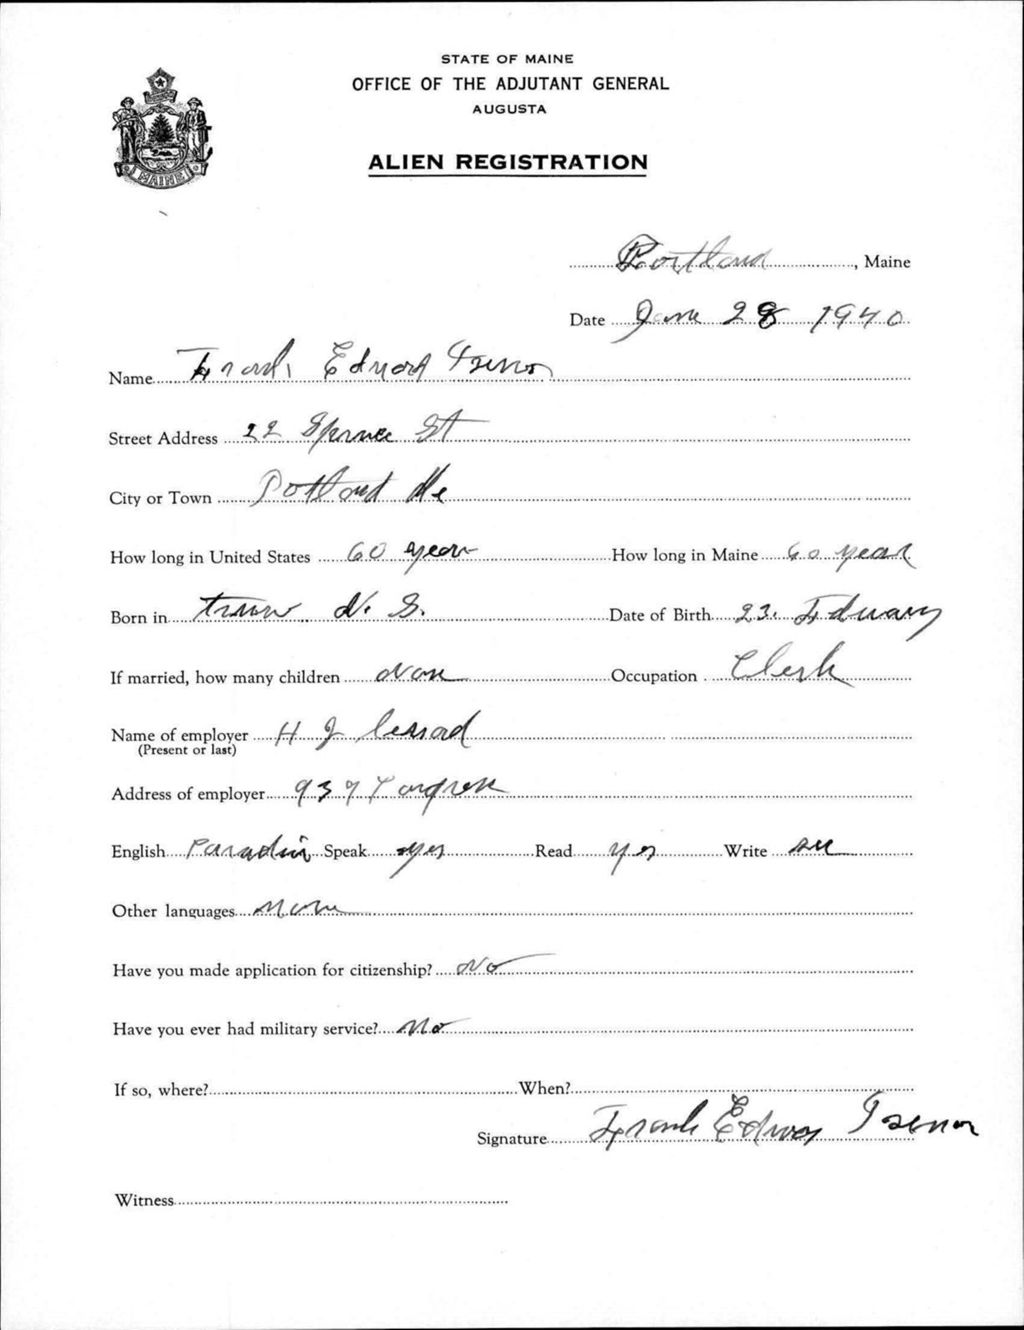 STATE OF MAINE
OFFICE OF THE ADJUTANT GENERAL
AUGUSTA
ALIEN REGISTRATION
MAINE
Portland, Maine
Date June 28 1940
Name Frank Edward
Street Address 22 Spruce St
City or Town Portland Me
How long in United States 60 years How long in Maine 60 year
Born in N. S. Date of Birth 23.
If married, how many children None Occupation Clerk
Name of employer H J
(Present or last)
Address of employer 937 Congress
English Speak yes Read yes Write
Other languages None
Have you made application for citizenship? No
Have you ever had military service? No
If so, where? When?
Signature Frank
Witness